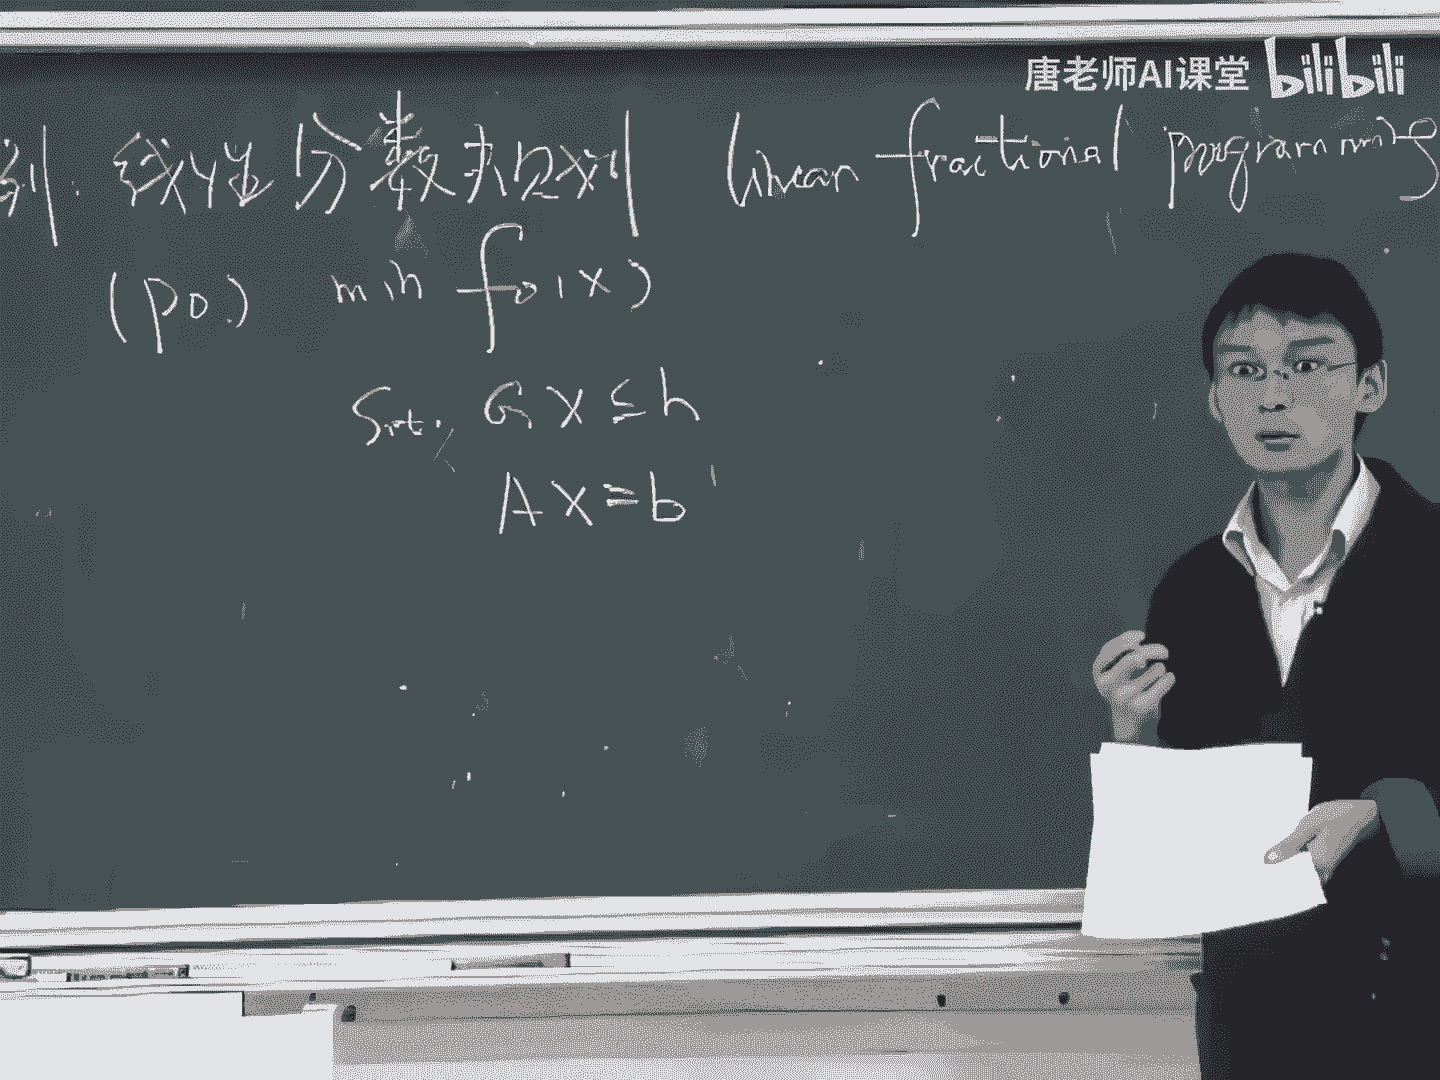 唐老师AI课堂 bilibili
例: 线性分数规划 linear fractional programming
(P0.) min f0(x)
s.t. Gx ≤ h
Ax = b